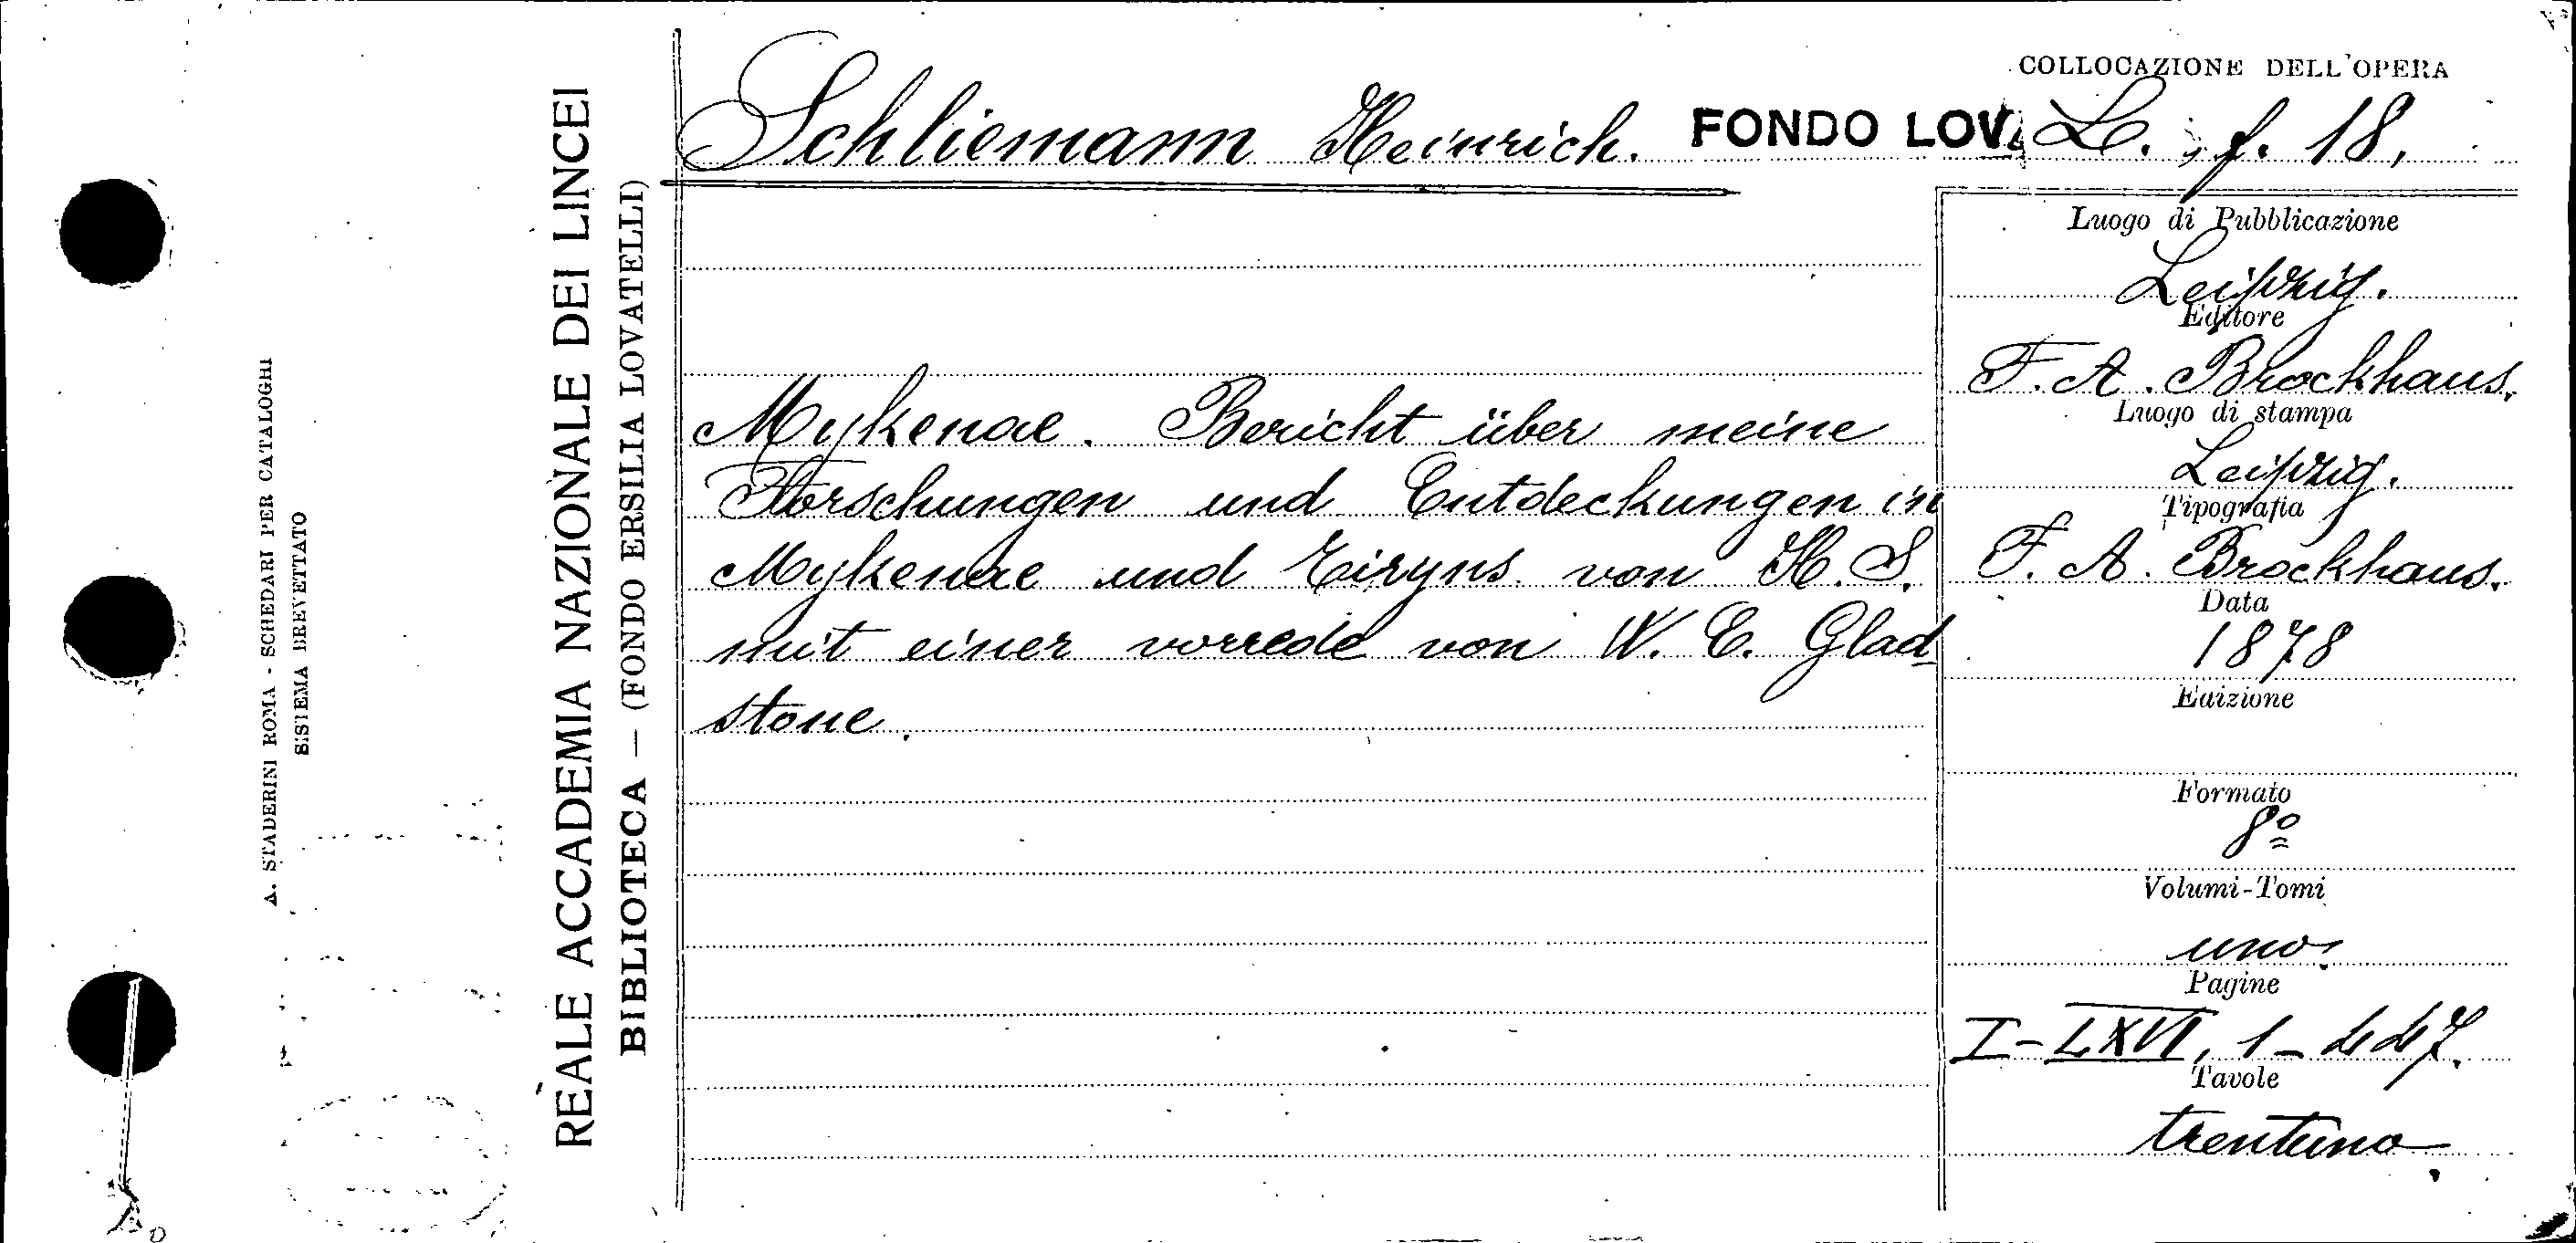 COLLOCAZIONE DELL'OPERA
Schliemann Heinrich. FONDO LOV. L. f. 18.
Mykenae. Bericht über meine
Forschungen und Entdeckungen in
Mykenae und Tiryns von H. S.
mit einer vorrede von W. E. Glad-
stone.
Luogo di Pubblicazione
Leipzig.
Editore
F. A. Brockhaus.
Luogo di stampa
Leipzig.
Tipografia
F. A. Brockhaus.
Data
1878
Edizione
Formato
8º
Volumi-Tomi
uno.
Pagine
I-LXVI, 1-447.
Tavole
trentuno
REALE ACCADEMIA NAZIONALE DEI LINCEI
BIBLIOTECA — (FONDO ERSILIA LOVATELLI)
A. STADERINI ROMA - SCHEDARI PER CATALOGHI
SISTEMA BREVETTATO